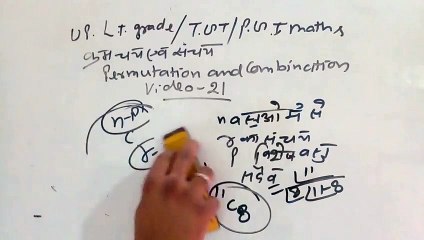 UP. L.T. grade/T.G.T/P.G.T maths
क्रमचय एवं संचय
Permutation and Combination
Video-21
n वस्तुओ में से
r का संचय
p विशेष वस्तु
सदैव
n-p
"C8